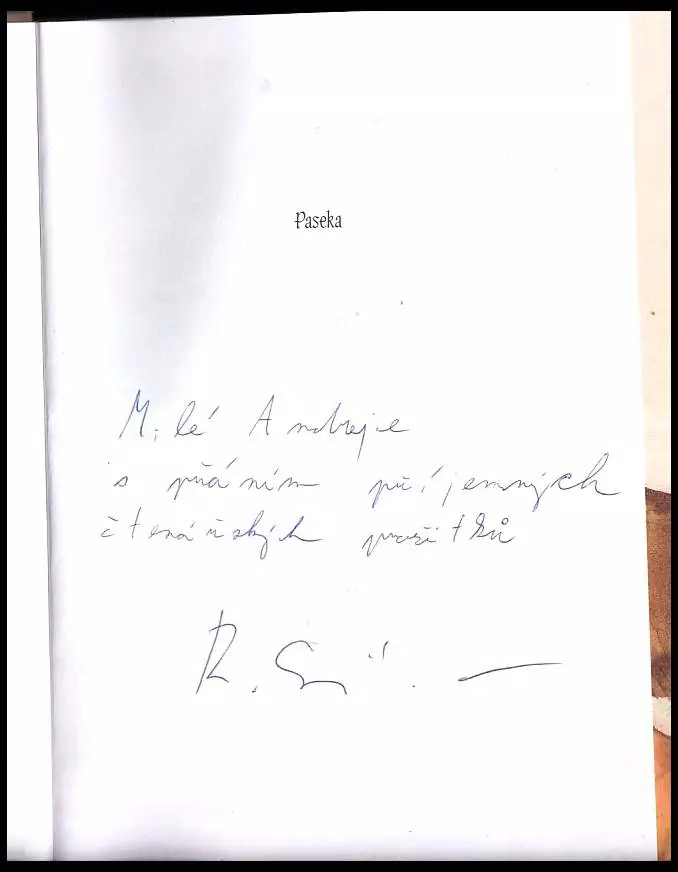 Paseka
Milé Andreje
s přáním příjemných
čtenářských prožitků
R.